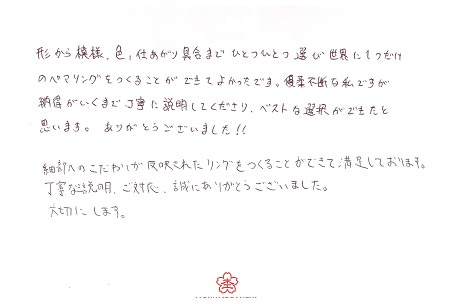 形から模様、色、仕あがり具合まで ひとつひとつ選び 世界に1つだけ
のペアリングをつくることができてよかったです。優柔不断な私ですが
納得がいくまで丁寧に説明してくださり、ベストな選択ができたと
思います。ありがとうございました!!
細部へのこだわりが反映されたリングをつくることができて満足しております。
丁寧な説明、ご対応、誠にありがとうございました。
大切にします。